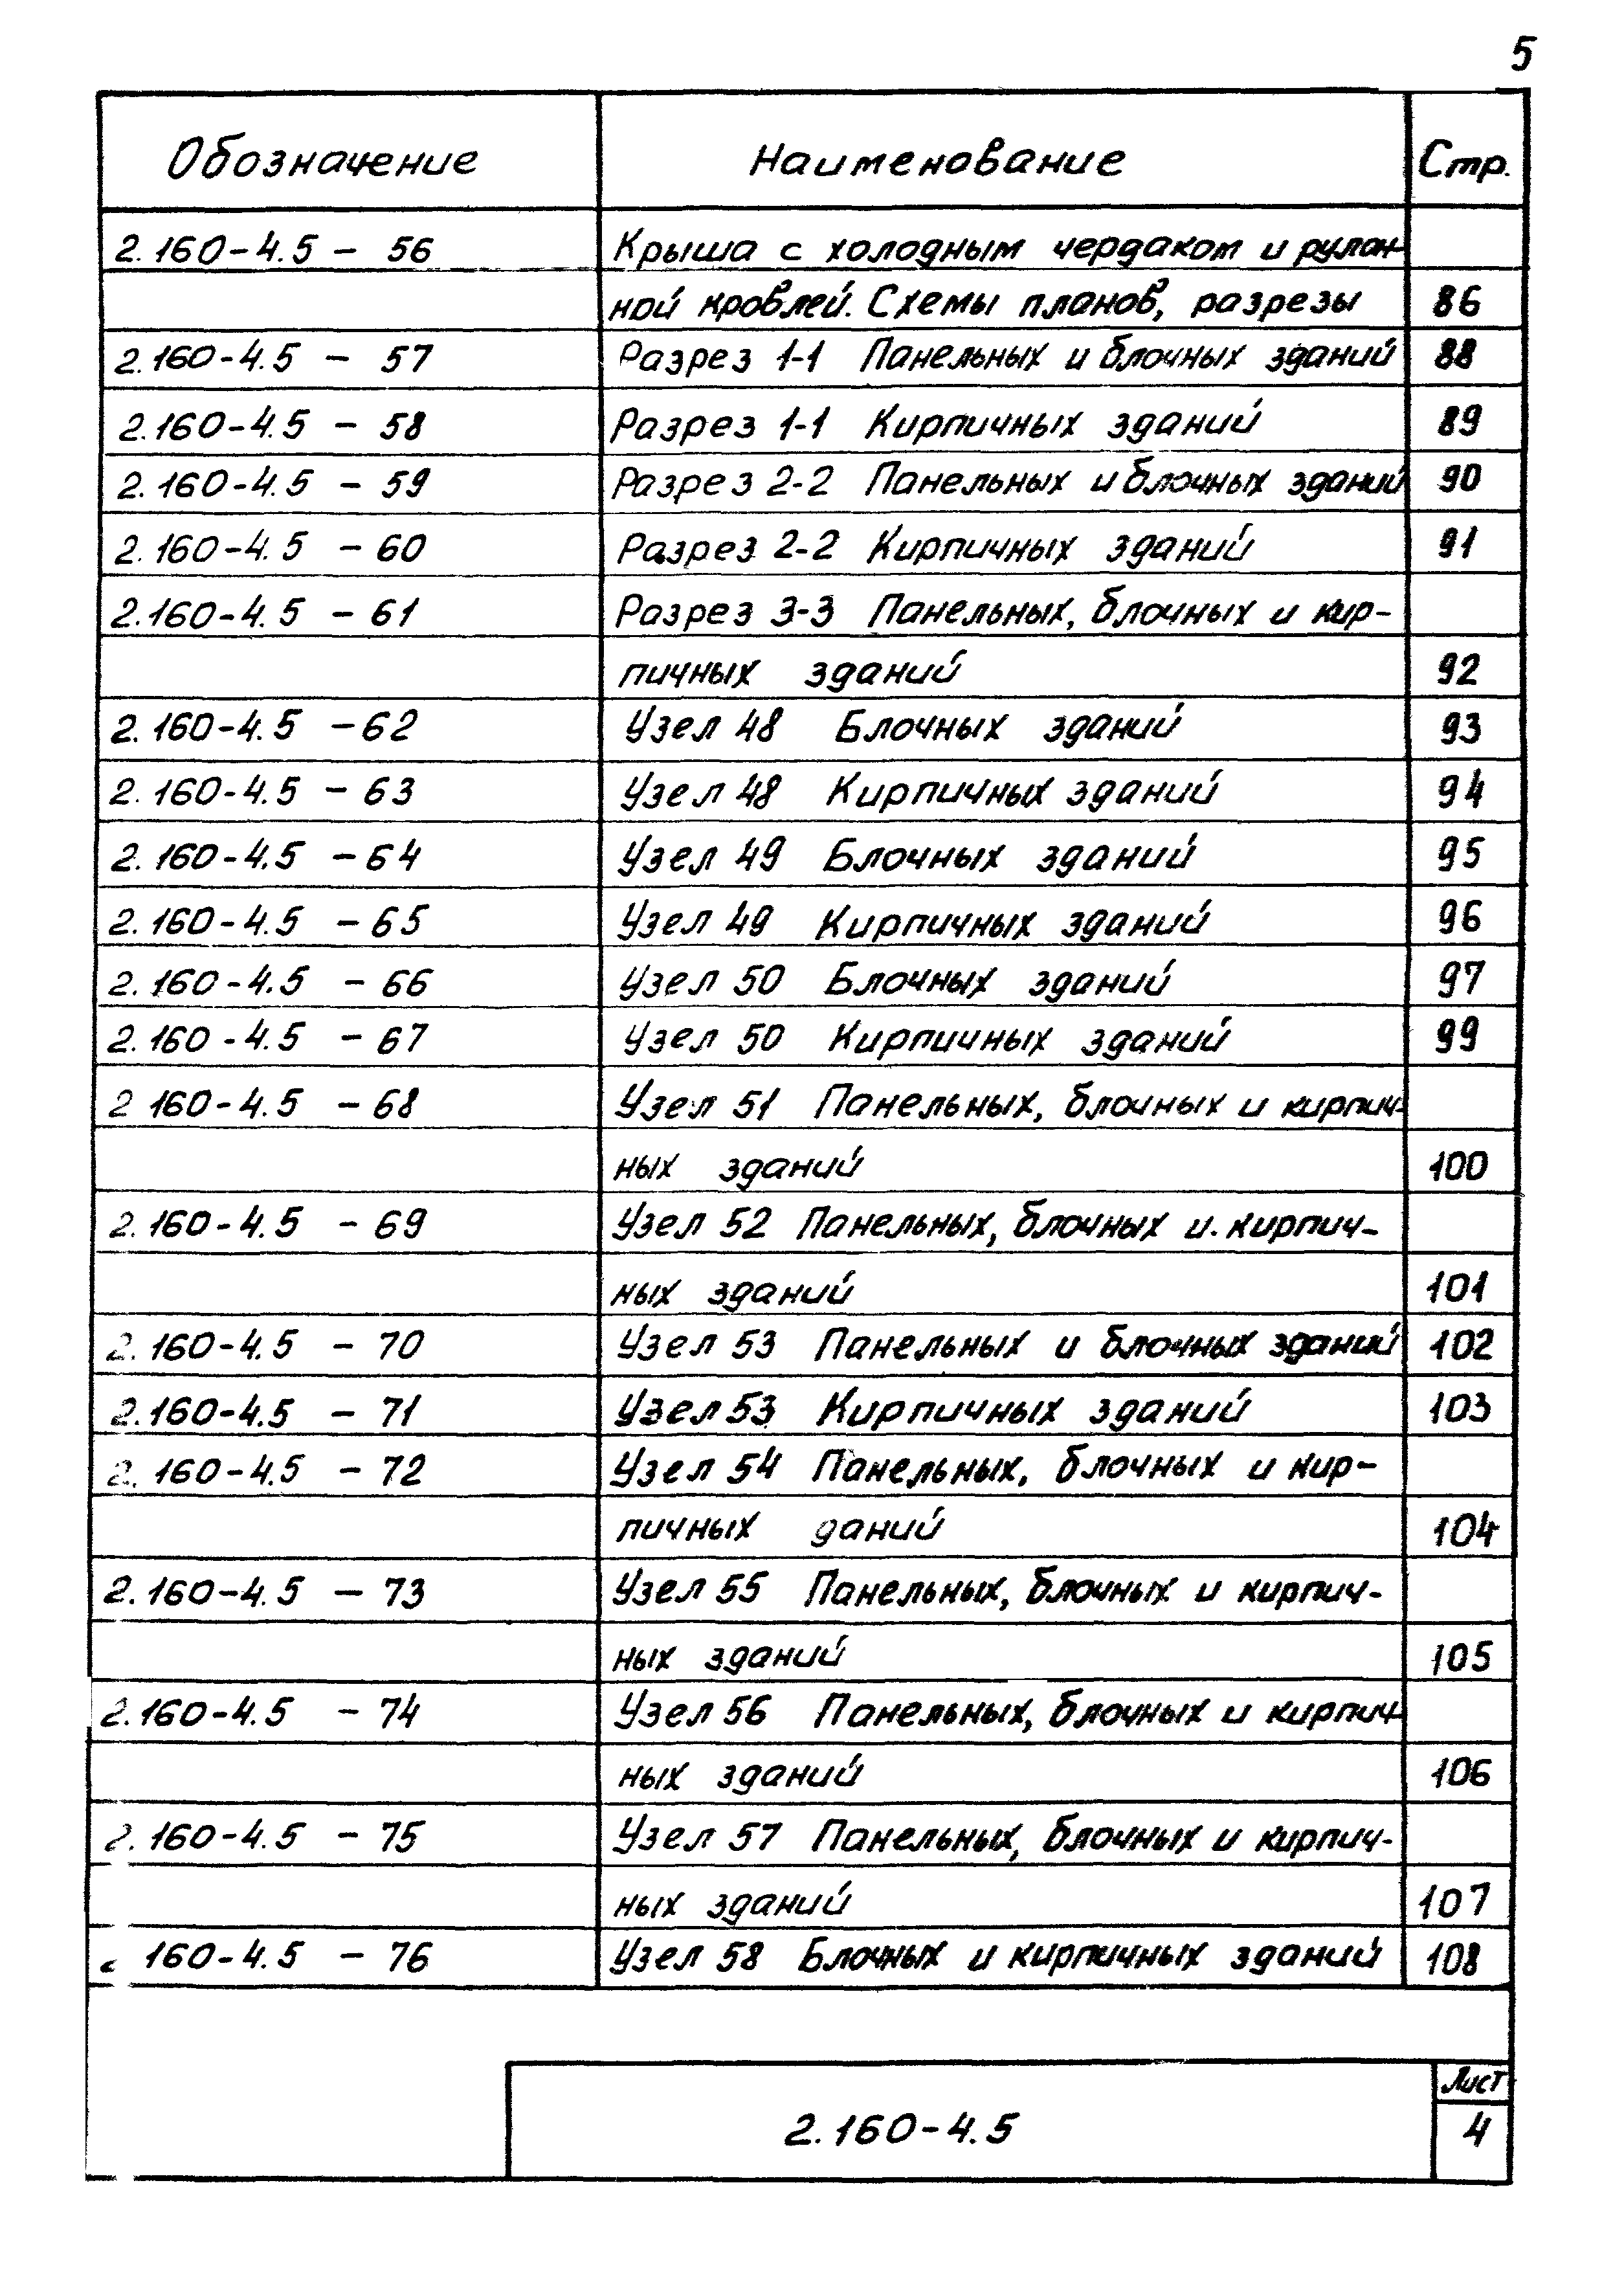 5
Обозначение Наименование Стр.
2.160-4.5 - 56 Крыша с холодным чердаком и рулон-
ной кровлей. Схемы планов, разрезы 86
2.160-4.5 - 57 Разрез 1-1 Панельных и блочных зданий 88
2.160-4.5 - 58 Разрез 1-1 Кирпичных зданий 89
2.160-4.5 - 59 Разрез 2-2 Панельных и блочных зданий 90
2.160-4.5 - 60 Разрез 2-2 Кирпичных зданий 91
2.160-4.5 - 61 Разрез 3-3 Панельных, блочных и кир-
пичных зданий 92
2.160-4.5 - 62 Узел 48 Блочных зданий 93
2.160-4.5 - 63 Узел 48 Кирпичных зданий 94
2.160-4.5 - 64 Узел 49 Блочных зданий 95
2.160-4.5 - 65 Узел 49 Кирпичных зданий 96
2.160-4.5 - 66 Узел 50 Блочных зданий 97
2.160-4.5 - 67 Узел 50 Кирпичных зданий 99
2 160-4.5 - 68 Узел 51 Панельных, блочных и кирпич-
ных зданий 100
2.160-4.5 - 69 Узел 52 Панельных, блочных и. кирпич-
ных зданий 101
2.160-4.5 - 70 Узел 53 Панельных и блочных зданий 102
2.160-4.5 - 71 Узел 53 Кирпичных зданий 103
2.160-4.5 - 72 Узел 54 Панельных, блочных и кир-
пичных даний 104
2.160-4.5 - 73 Узел 55 Панельных, блочных и кирпич-
ных зданий 105
2.160-4.5 - 74 Узел 56 Панельных, блочных и кирпич-
ных зданий 106
2.160-4.5 - 75 Узел 57 Панельных, блочных и кирпич-
ных зданий 107
160-4.5 - 76 Узел 58 Блочных и кирпичных зданий 108
Лист
2.160-4.5 4